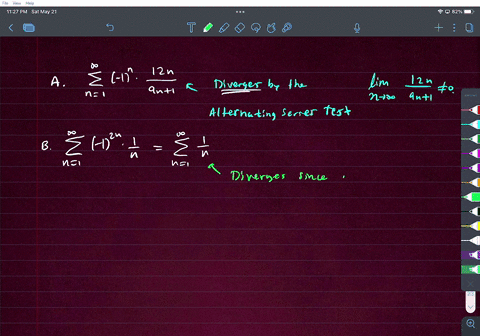 11:27 PM Sat May 21
82%
A. ∞ Σ n=1 (-1)^n · 12n / 9n+1 Diverges by the Alternating Series Test
lim n→∞ 12n / 9n+1 ≠ 0.
B. ∞ Σ n=1 (-1)^2n · 1/n = ∞ Σ n=1 1/n
Diverges since